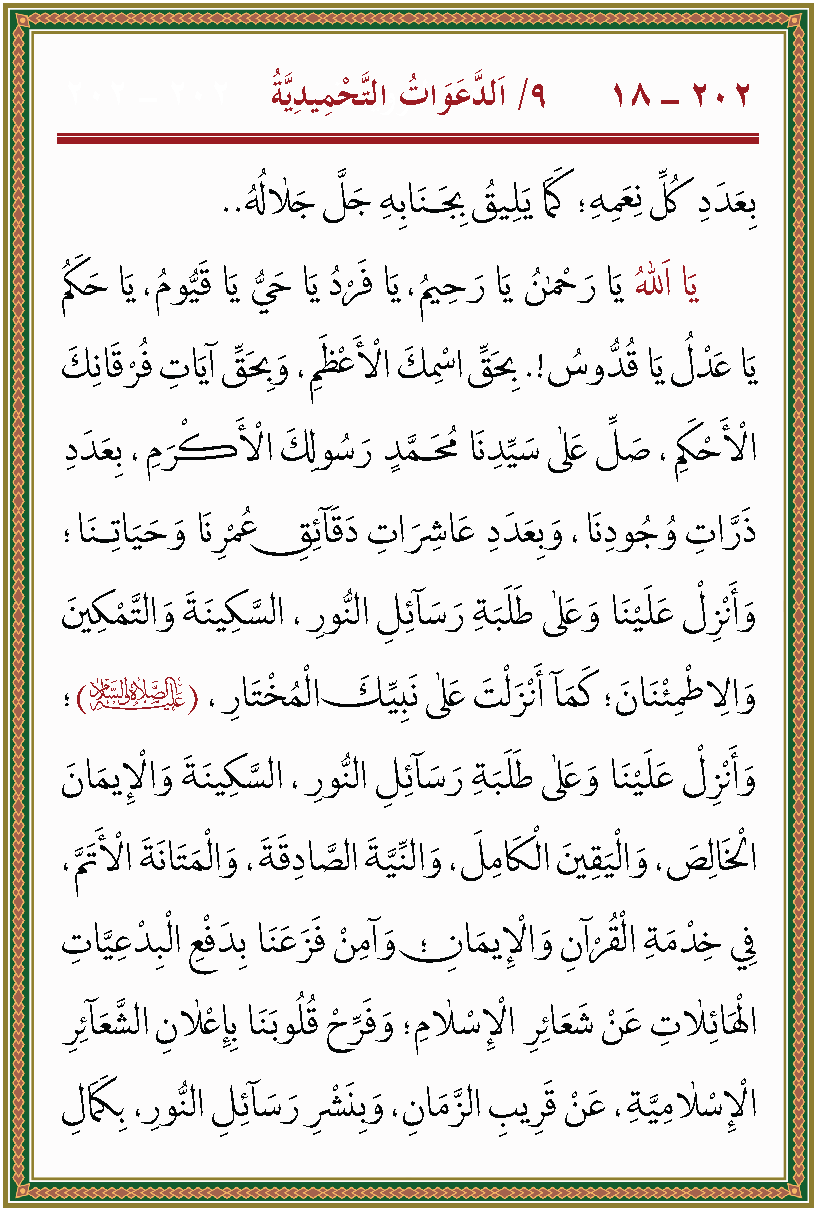 ٢٠٢ ــ ١٨ ٩/ اَلدَّعَوَاتُ التَّحْمِيدِيَّةُ
بِعَدَدِ كُلِّ نِعَمِهِ؛ كَمَا يَلِيقُ بِجَنَابِهِ جَلَّ جَلَالُهُ..
يَا اَللّٰهُ يَا رَحْمٰنُ يَا رَحِيمُ، يَا فَرْدُ يَا حَيُّ يَا قَيُّومُ، يَا حَكَمُ
يَا عَدْلُ يَا قُدُّوسُ!. بِحَقِّ اسْمِكَ الْأَعْظَمِ، وَبِحَقِّ آيَاتِ فُرْقَانِكَ
الْأَحْكَمِ، صَلِّ عَلٰى سَيِّدِنَا مُحَمَّدٍ رَسُولِكَ الْأَكْرَمِ، بِعَدَدِ
ذَرَّاتِ وُجُودِنَا، وَبِعَدَدِ عَاشِرَاتِ دَقَآئِقِ عُمْرِنَا وَحَيَاتِنَا؛
وَأَنْزِلْ عَلَيْنَا وَعَلٰى طَلَبَةِ رَسَآئِلِ النُّورِ، السَّكِينَةَ وَالتَّمْكِينَ
وَالِاطْمِئْنَانَ؛ كَمَآ أَنْزَلْتَ عَلٰى نَبِيِّكَ الْمُخْتَارِ، (عَلَيْهِ الصَّلَاةُ وَالسَّلَامُ)؛
وَأَنْزِلْ عَلَيْنَا وَعَلٰى طَلَبَةِ رَسَآئِلِ النُّورِ، السَّكِينَةَ وَالْإِيمَانَ
الْخَالِصَ، وَالْيَقِينَ الْكَامِلَ، وَالنِّيَّةَ الصَّادِقَةَ، وَالْمَتَانَةَ الْأَتَمَّ،
فِي خِدْمَةِ الْقُرْآنِ وَالْإِيمَانِ؛ وَآمِنْ فَزَعَنَا بِدَفْعِ الْبِدْعِيَّاتِ
الْهَائِلَاتِ عَنْ شَعَائِرِ الْإِسْلَامِ؛ وَفَرِّحْ قُلُوبَنَا بِإِعْلَانِ الشَّعَآئِرِ
الْإِسْلَامِيَّةِ، عَنْ قَرِيبِ الزَّمَانِ، وَبِنَشْرِ رَسَآئِلِ النُّورِ، بِكَمَالِ